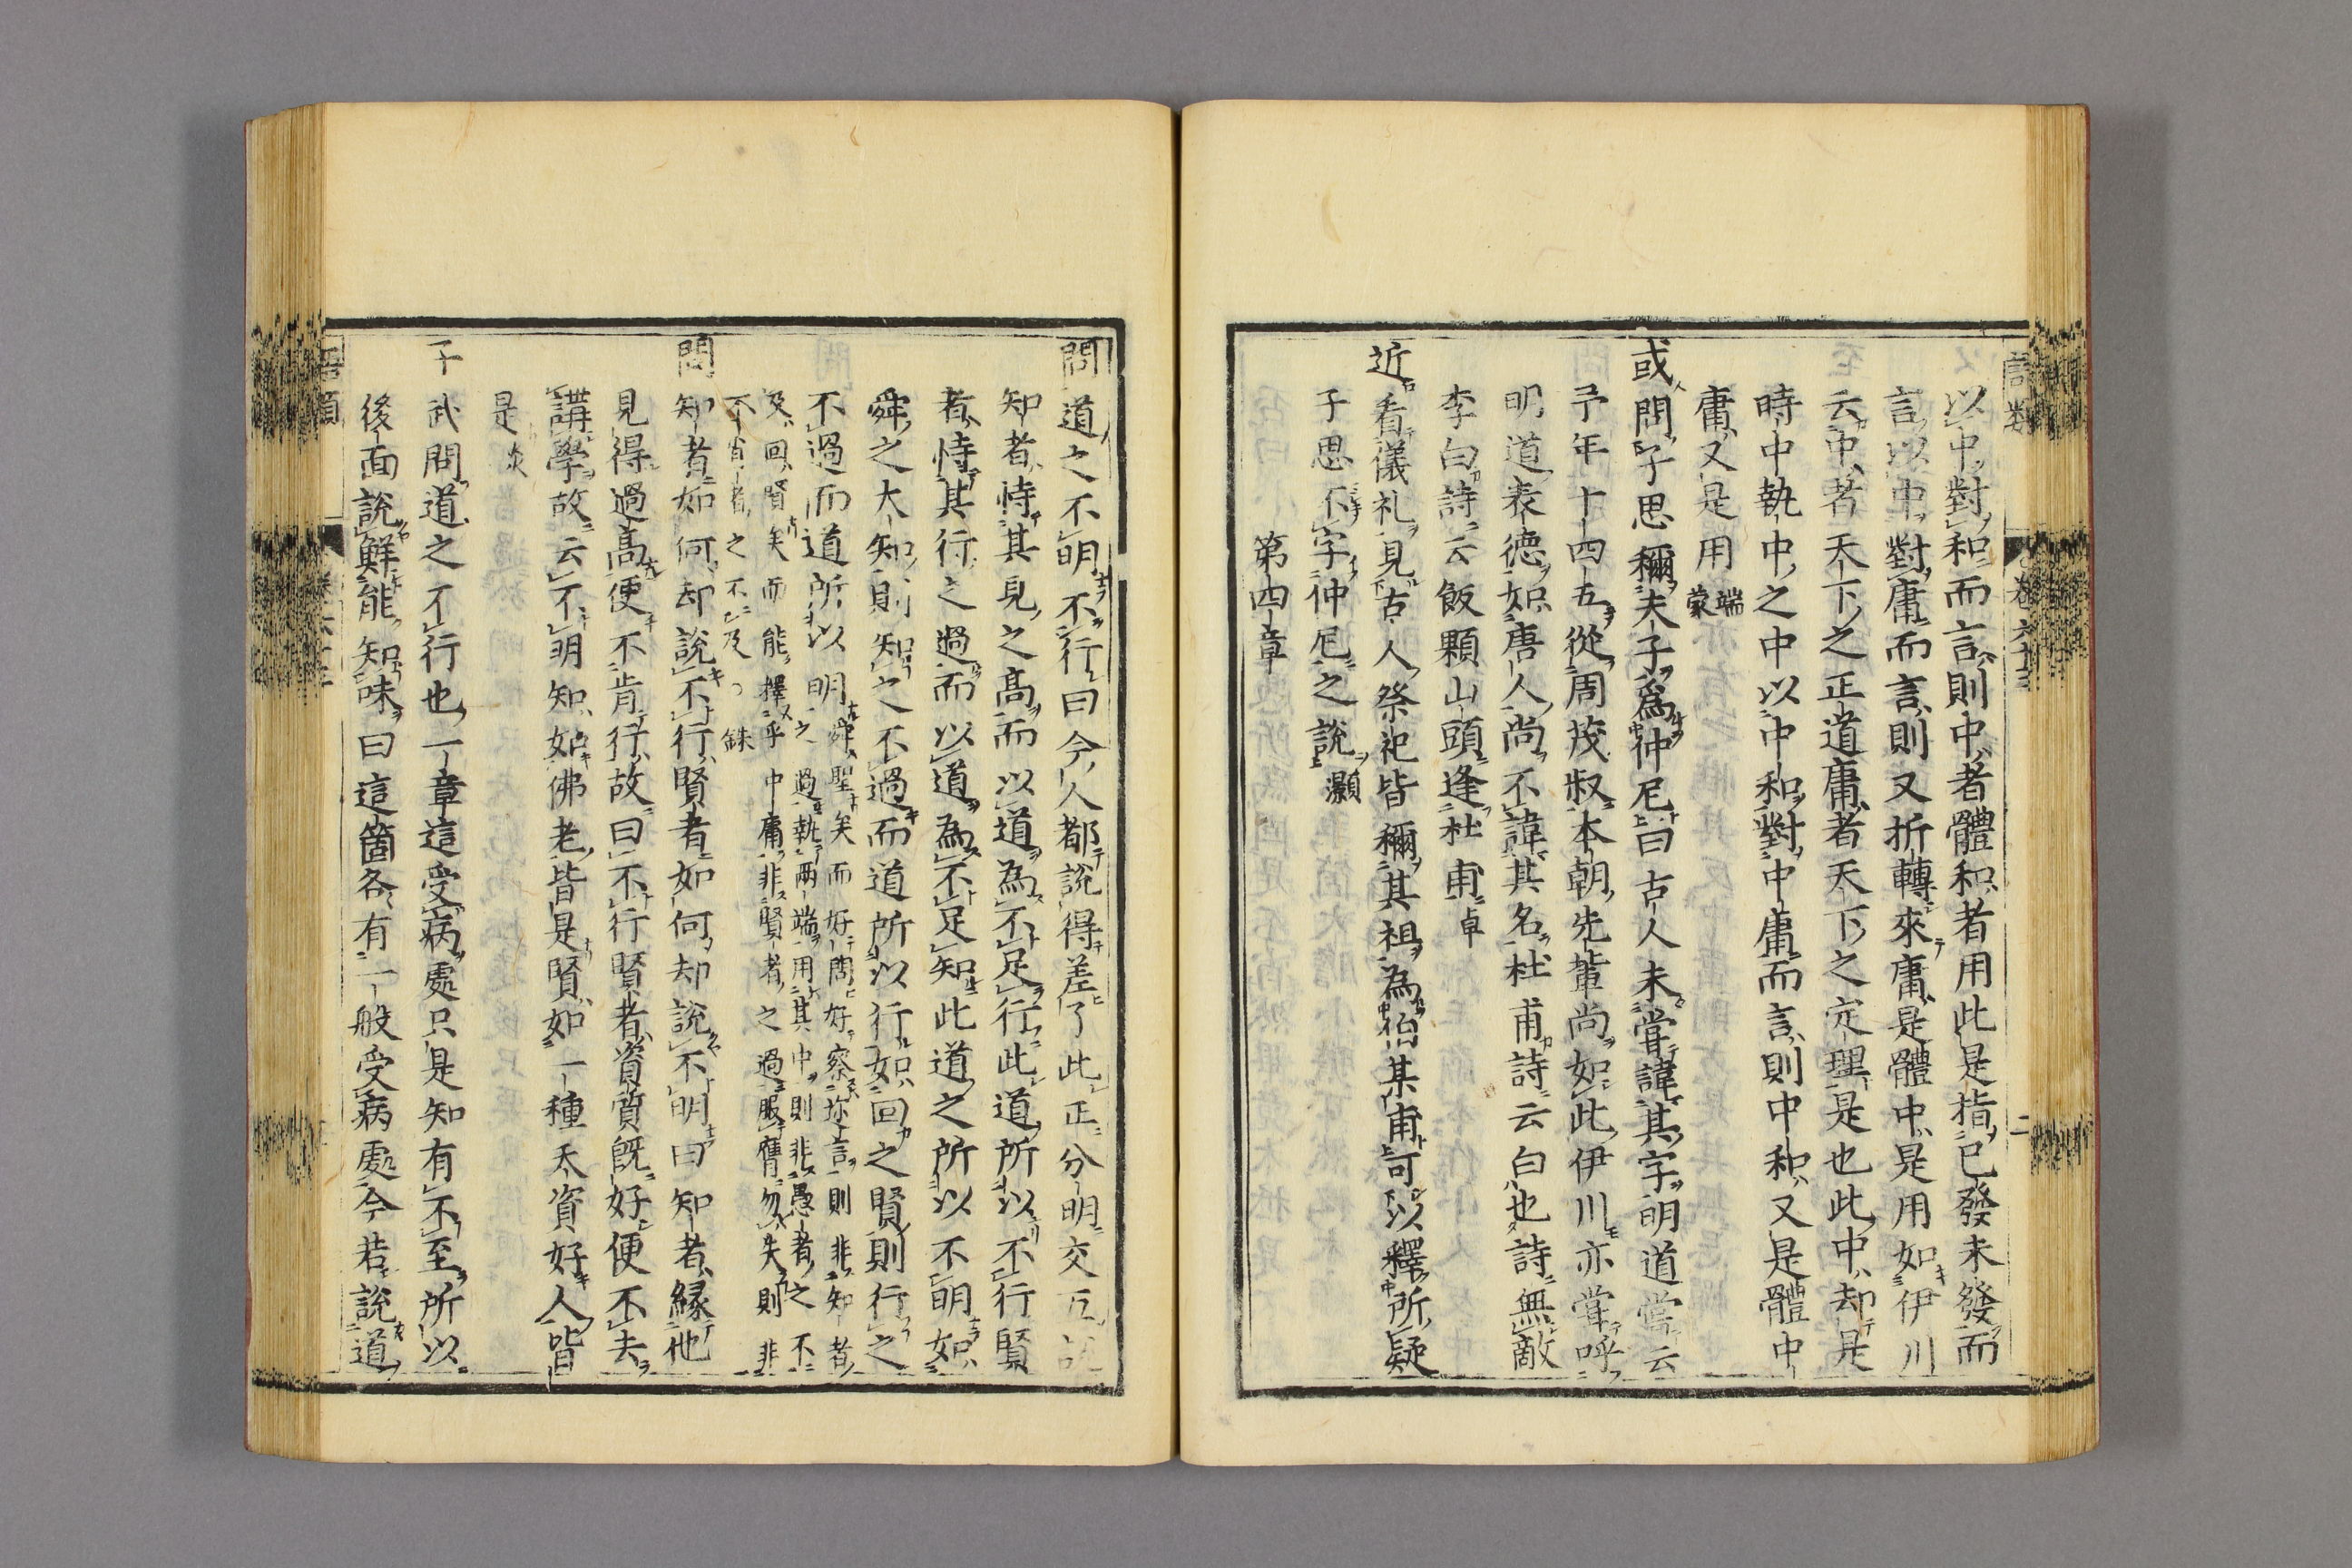 以中對和而言則中者體和者用此是指已發未發而
言以中對庸而言則又折轉來庸是體中是用如伊川
云中者天下之正道庸者天下之定理是也此中却是
時中執中之中以中和對中庸而言則中和又是體中
庸又是用端蒙
或問子思稱夫子爲仲尼曰古人未嘗諱其字明道嘗云
予年十四五從周茂叔本朝先輩尚如此伊川亦嘗呼
明道表德如唐人尚不諱其名杜甫詩云白也詩無敵
李白詩云飯顆山頭逢杜甫卓
近看儀礼見古人祭祀皆稱其祖為伯某甫可以釋所疑
子思不字仲尼之說灝
第四章
問道之不明不行曰今人都說得差了此正分明交互說
知者恃其見之高而以道為不足行此道所以不行賢
者恃其行之過而以道為不足知此道之所以不明如
舜之大知則知之不過而道所以行如回之賢則行之
不過而道所以明舜聖矣而好問好察邇言則非知者
之過執兩端用其中則非愚者之不
及回賢矣而能擇乎中庸非賢者之過服膺勿失則非
不肖者之不及銖
問知者如何却說不行賢者如何却說不明曰知者緣他
見得過高便不肯行故曰不行賢者資質既好便不去
講學故云不明知如佛老皆是賢如一種天資好人皆
是炎
子武問道之不行也一章這受病處只是知有不至所以
後面說鮮能知味曰這箇各有一般受病處今若說道
語類
卷六十三
二